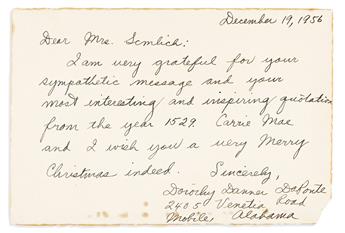 December 19, 1956
Dear Mrs. Semlich:
I am very grateful for your
sympathetic message and your
most interesting and inspiring quotation
from the year 1529. Carrie Mae
and I wish you a very Merry
Christmas indeed. Sincerely,
Dorothy Danner DaPonte
2405 Venetia Road
Mobile, Alabama